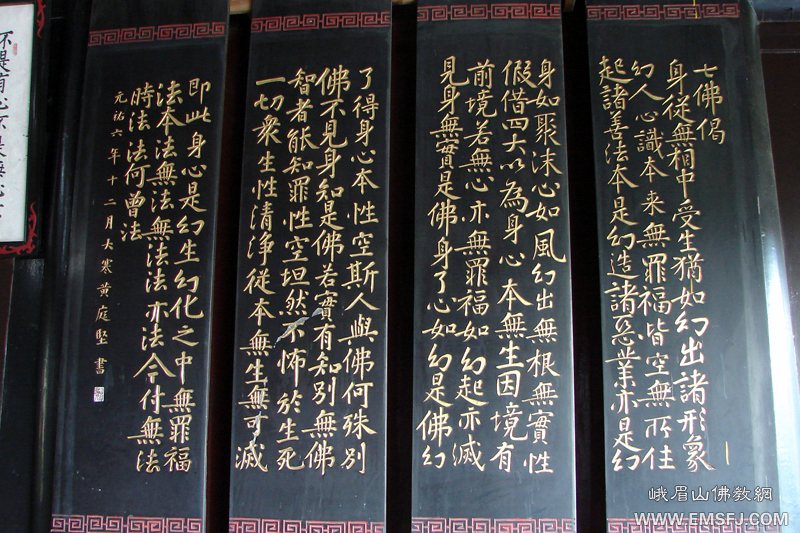 七佛偈
身從無相中受生猶如幻出諸形象
幻人心識本来無罪福皆空無所住
起諸善法本是幻造諸惡業亦是幻
身如聚沫心如風幻出無根無實性
假借四大以為身心本無生因境有
前境若無心亦無罪福如幻起亦滅
見身無實是佛身了心如幻是佛幻
了得身心本性空斯人與佛何殊別
佛不見身知是佛若實有知別無佛
智者能知罪性空坦然不怖於生死
一切衆生性清淨從本無生無可滅
即此身心是幻生幻化之中無罪福
法本法無法無法法亦法今付無法
時法法何曾法
元祐六年十二月大寒黃庭堅書
不是有心不是
峨眉山佛教網
WWW.EMSFJ.COM